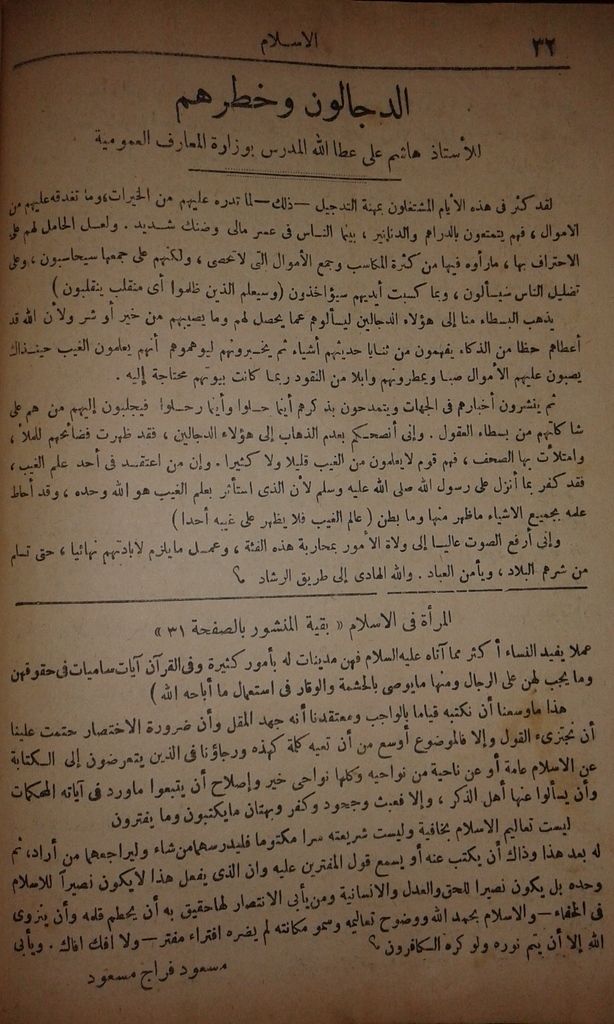 ٣٢
الاسلام
الدجالون وخطرهم
للأستاذ هاشم على عطا الله المدرس بوزارة المعارف العمومية
لقد كثر فى هذه الأيام المشتغلون بمهنة التدجيل —ذلك— لما تدره عليهم من الخيرات، وما تغدقه عليهم من
الاموال ، فهم يتمتعون بالدراهم والدنانير ، بينما الناس فى عسر مالى وضنك شديد . ولعل الحامل لهم على
الاحتراف بها ، مارأوه فيها من كثرة المكاسب وجمع الأموال التى لاتحصى ، ولكنهم على جمعها سيحاسبون ، وعلى
تضليل الناس سيسألون ، وبما كسبت أيديهم سيؤاخذون (وسيعلم الذين ظلموا أى منقلب ينقلبون )
يذهب البسطاء منا إلى هؤلاء الدجالين ليسألوهم عما يحصل لهم وما يصيبهم من خير أو شر ولأن الله قد
أعطاهم حظا من الذكاء يفهمون من ثنايا حديثهم أشياء ثم يخبرونهم ليوهموهم أنهم يعلمون الغيب حينذاك
يصبون عليهم الأموال صبا ويمطرونهم وابلا من النقود ربما كانت بيوتهم محتاجة إليه .
ثم ينشرون أخبارهم فى الجهات ويتمدحون بذكرهم أينما حلوا وأينما رحلوا فيجلبون إليهم من هم على
شاكلتهم من بسطاء العقول . وإنى أنصحكم بعدم الذهاب إلى هؤلاء الدجالين ، فقد ظهرت فضائحهم للملأ ،
وامتلأت بها الصحف ، فهم قوم لايعلمون من الغيب قليلا ولا كثيرا . وإن من اعتقد فى أحد علم الغيب ،
فقد كفر بما أنزل على رسول الله صلى الله عليه وسلم لأن الذى استأثر بعلم الغيب هو الله وحده ، وقد أحاط
علمه بجميع الاشياء ماظهر منها وما بطن ( عالم الغيب فلا يظهر على غيبه أحدا )
وإنى أرفع الصوت عاليا إلى ولاة الأمور بمحاربة هذه الفئة ، وعمل مايلزم لابادتهم نهائيا ، حتى تسلم
من شرهم البلاد ، ويأمن العباد . والله الهادى إلى طريق الرشاد
المرأة فى الاسلام « بقية المنشور بالصفحة ٣١ »
عملا يفيد النساء أكثر مما آتاه عليه السلام فهن مدينات له بأمور كثيرة وفى القرآن آيات ساميات فى حقوقهن
وما يجب لهن على الرجال ومنها مايوصى بالحشمة والوقار فى استعمال ما أباحه الله )
هذا ماوسعنا أن نكتبه قياما بالواجب ومعتقدنا أنه جهد المقل وأن ضرورة الاختصار حتمت علينا
أن نجتزىء القول وإلا فالموضوع أوسع من أن تعيه كلمة كهذه ورجاؤنا فى الذين يتعرضون إلى الكتابة
عن الاسلام عامة أو عن ناحية من نواحيه وكلها نواحى خير وإصلاح أن يتبعوا ماورد فى آياته المحكمات
وأن يسألوا عنها أهل الذكر ، وإلا فعبث وجحود وكفر وبهتان مايكتبون وما يفترون
ليست تعاليم الاسلام بخافية وليست شريعته سرا مكتوما فليدرسهما من شاء وليراجعهما من أراد، ثم
له بعد هذا وذاك أن يكتب عنه أو يسمع قول المفترين عليه وان الذى يفعل هذا لايكون نصيراً للاسلام
وحده بل يكون نصيرا للحق والعدل والانسانية ومن يأبى الانتصار لها حقيق به أن يحطم قلمه وأن ينزوى
فى الخفاء — والاسلام بحمد الله ووضوح تعاليمه وسمو مكانته لم يضره افتراء مفتر — ولا افك افاك . ويأبى
الله إلا أن يتم نوره ولو كره الكافرون
مسعود فراج مسعود